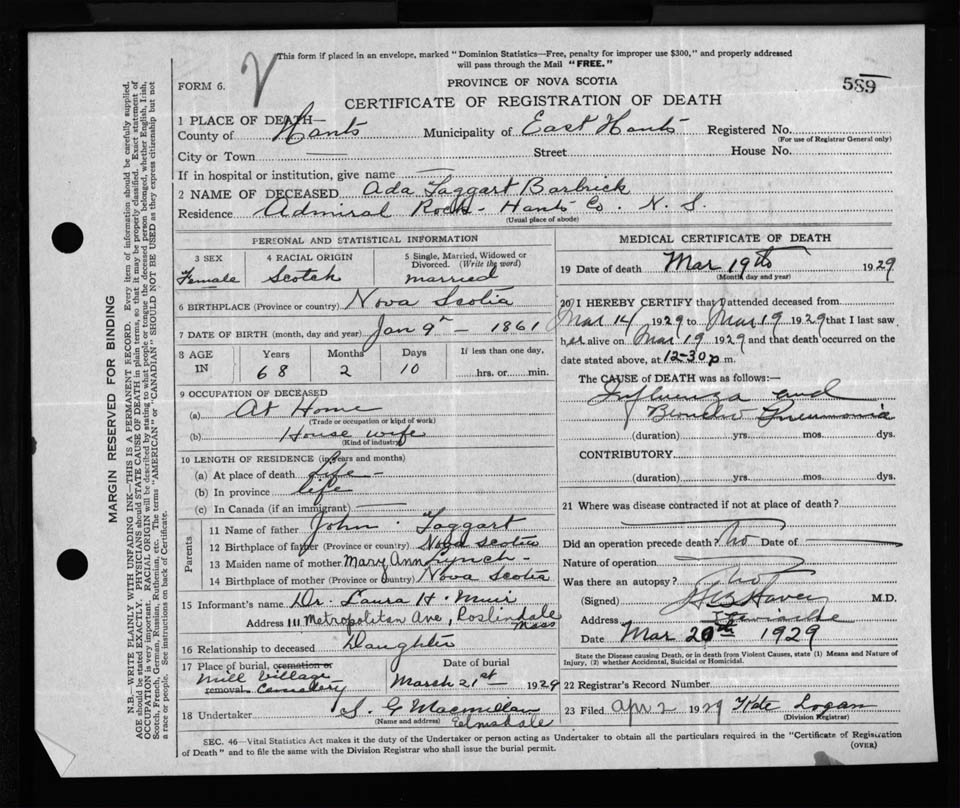 This form if placed in an envelope, marked "Dominion Statistics—Free, penalty for improper use $300," and properly addressed
will pass through the Mail "FREE."
FORM 6.
PROVINCE OF NOVA SCOTIA
589
CERTIFICATE OF REGISTRATION OF DEATH
1 PLACE OF DEATH—
County of Hants Municipality of East Hants Registered No.
(For use of Registrar General only)
City or Town — Street House No.
If in hospital or institution, give name —
2 NAME OF DECEASED Ada Taggart Barbrick
Residence Admiral Rock - Hants Co. N. S.
(Usual place of abode)
PERSONAL AND STATISTICAL INFORMATION
3 SEX 4 RACIAL ORIGIN 5 Single, Married, Widowed or
Divorced. (Write the word)
Female Scotch married
6 BIRTHPLACE (Province or country) Nova Scotia
7 DATE OF BIRTH (month, day and year) Jan 9th — 1861
8 AGE IN Years Months Days If less than one day,
68 2 10 hrs. or min.
9 OCCUPATION OF DECEASED
(a) At Home
(Trade or occupation or kind of work)
(b) House wife
(Kind of industry)
10 LENGTH OF RESIDENCE (in years and months)
(a) At place of death life —
(b) In province life
(c) In Canada (if an immigrant) —
Parents
11 Name of father John Taggart
12 Birthplace of father (Province or country) Nova Scotia
13 Maiden name of mother Mary Ann Lynch -
14 Birthplace of mother (Province or country) Nova Scotia
15 Informant's name Dr. Laura H. Muir
Address 111 Metropolitan Ave, Roslindale
Mass
16 Relationship to deceased Daughter
17 Place of burial, cremation or Date of burial
Mill Village
removal Cemetery March 21st 1929
18 Undertaker S. G Macmillan
(Name and address) Elmsdale
MEDICAL CERTIFICATE OF DEATH
19 Date of death Mar 19th 1929
(Month, day and year)
20 I HEREBY CERTIFY that I attended deceased from
Mar 14 1929 to Mar 19 1929 that I last saw
her alive on Mar 19 1929 and that death occurred on the
date stated above, at 12-30 p m.
The CAUSE OF DEATH was as follows:—
Influenza and
Broncho Pneumonia
(duration) yrs. mos. dys.
CONTRIBUTORY
(duration) yrs. mos. dys.
21 Where was disease contracted if not at place of death?
Did an operation precede death? No Date of —
Nature of operation —
Was there an autopsy? No
(Signed) M.D.
Address
Date Mar 20th 1929
State the Disease causing Death, or in death from Violent Causes, state (1) Means and Nature of
Injury, (2) whether Accidental, Suicidal or Homicidal.
22 Registrar's Record Number
23 Filed Apr 2 1929 Logan
(Division Registrar)
SEC. 46—Vital Statistics Act makes it the duty of the Undertaker or person acting as Undertaker to obtain all the particulars required in the "Certificate of Registration
of Death" and to file the same with the Division Registrar who shall issue the burial permit.
(OVER)
MARGIN RESERVED FOR BINDING
N.B.—WRITE PLAINLY WITH UNFADING INK—THIS IS A PERMANENT RECORD. Every item of information should be carefully supplied.
AGE should be stated EXACTLY. PHYSICIANS should STATE CAUSE OF DEATH in plain terms, so that it may be properly classified. Exact statement of
OCCUPATION is very important. RACIAL ORIGIN will be described by stating to what people or tongue the deceased person belonged, whether English, Irish,
Scotch, French, German, Russian, Ruthenian, etc. The terms "AMERICAN" or "CANADIAN" SHOULD NOT BE USED as they express citizenship but not
a race or people. See instructions on back of Certificate.